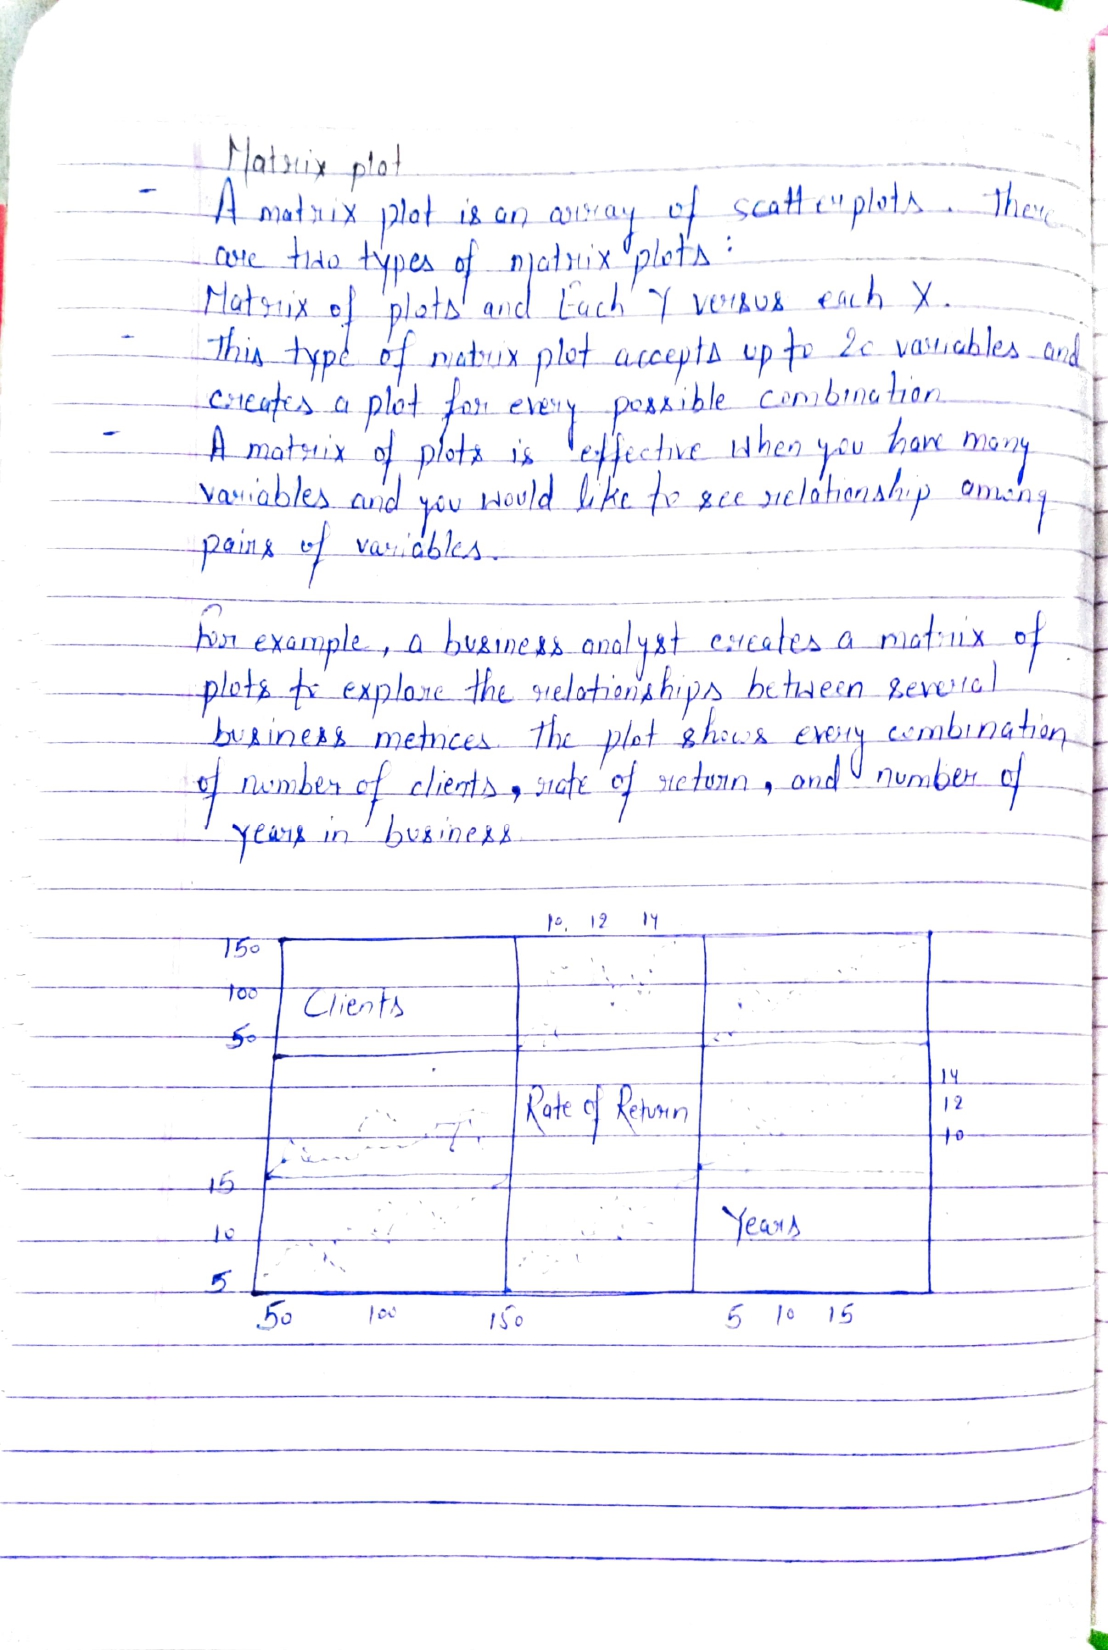 Matrix plot
- A matrix plot is an array of scatterplots. There
are two types of matrix plots:
Matrix of plots and Each Y versus each X.
- This type of matrix plot accepts up to 20 variables and
creates a plot for every possible combination
- A matrix of plots is effective when you have many
variables and you would like to see relationship among
pairs of variables.
For example, a business analyst creates a matrix of
plots to explore the relationships between several
business metrices. The plot shows every combination
of number of clients, rate of return, and number of
years in business.
10. 12 14
150
100 Clients
50
14
Rate of Return 12
10
15
10 Years
5
50 100 150 5 10 15